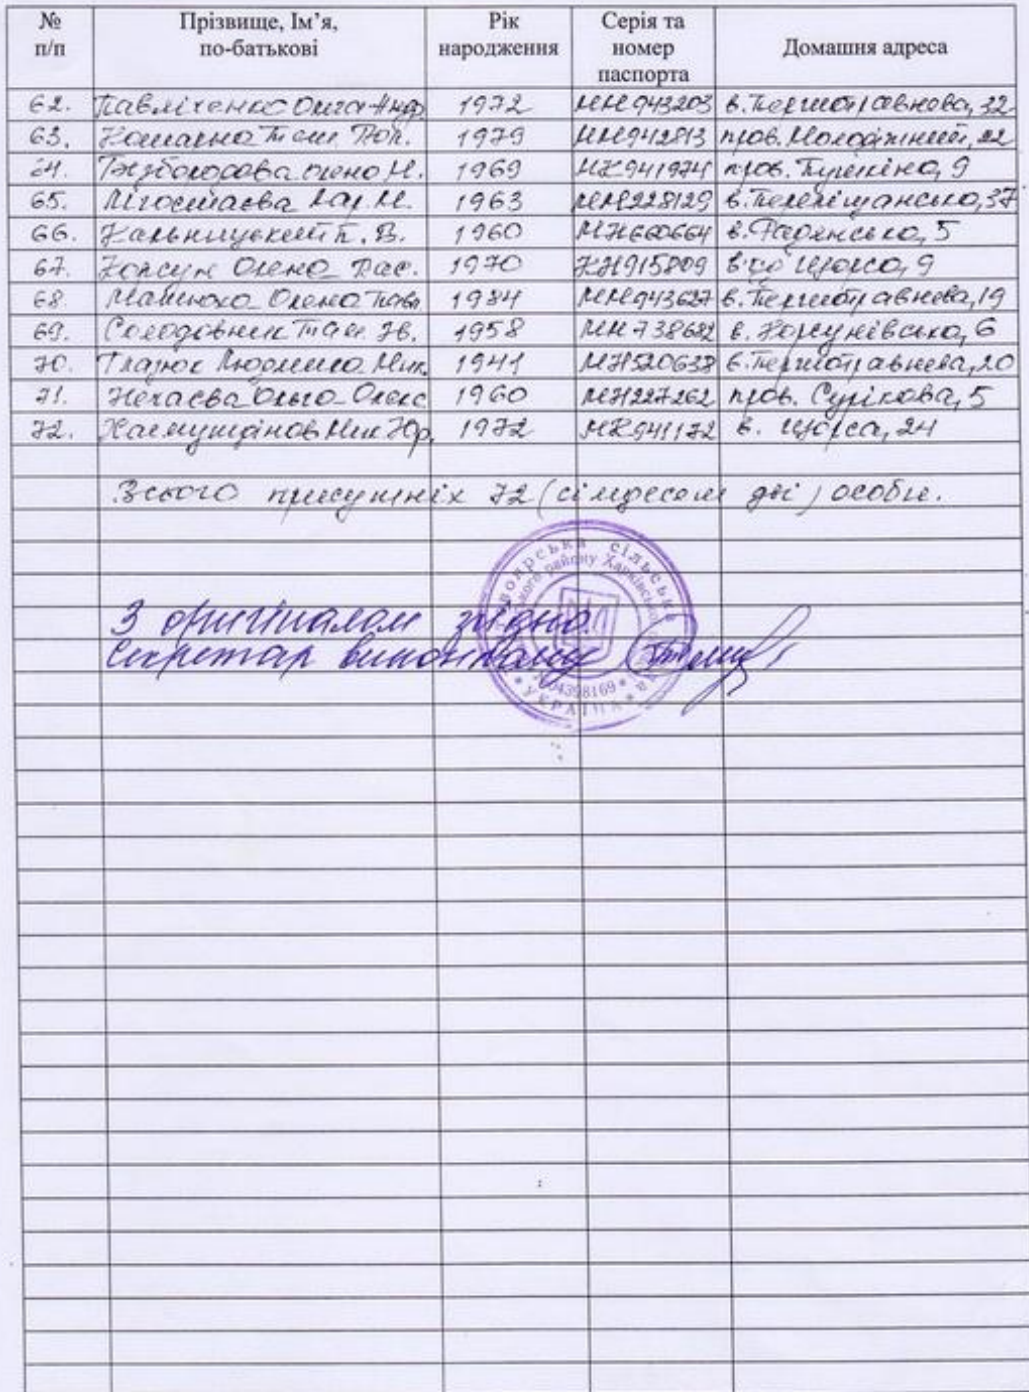 № п/п Прізвище, Ім’я, по-батькові Рік народження Серія та номер паспорта Домашня адреса
62. Павліченко Ольга Андр 1972 МН943203 в. Першотравнева, 32
63. 1979 МН942813 пров. Молодіжний, 22
64. Беззбородова Олена М. 1969 МК941974 пров. Пушкіна, 9
65. Лар. М. 1963 ММ228129 в. 37
66. В. 1960 МН660664 в. Радянська, 5
67. Корсун Олена Вас. 1970 КН915809 Щорса, 9
68. Олена Павл 1984 МН943627 в. Першотравнева, 19
69. Солодовник Там. Ів. 1958 МН738682 в. Корсунівська, 6
70. Людмила Мик. 1941 МН520638 в. Першотравнева, 20
71. Нечаєва Ольга Олекс 1960 МН227262 пров. Сурікова, 5
72. Мик Юр. 1972 МК941172 в. Щорса, 24
Всього присутніх 72 (сімдесят дві) особи.
З оригіналом згідно
Секретар виконкому
сільськ
району Харківської
04398169
* УКРАЇНА *